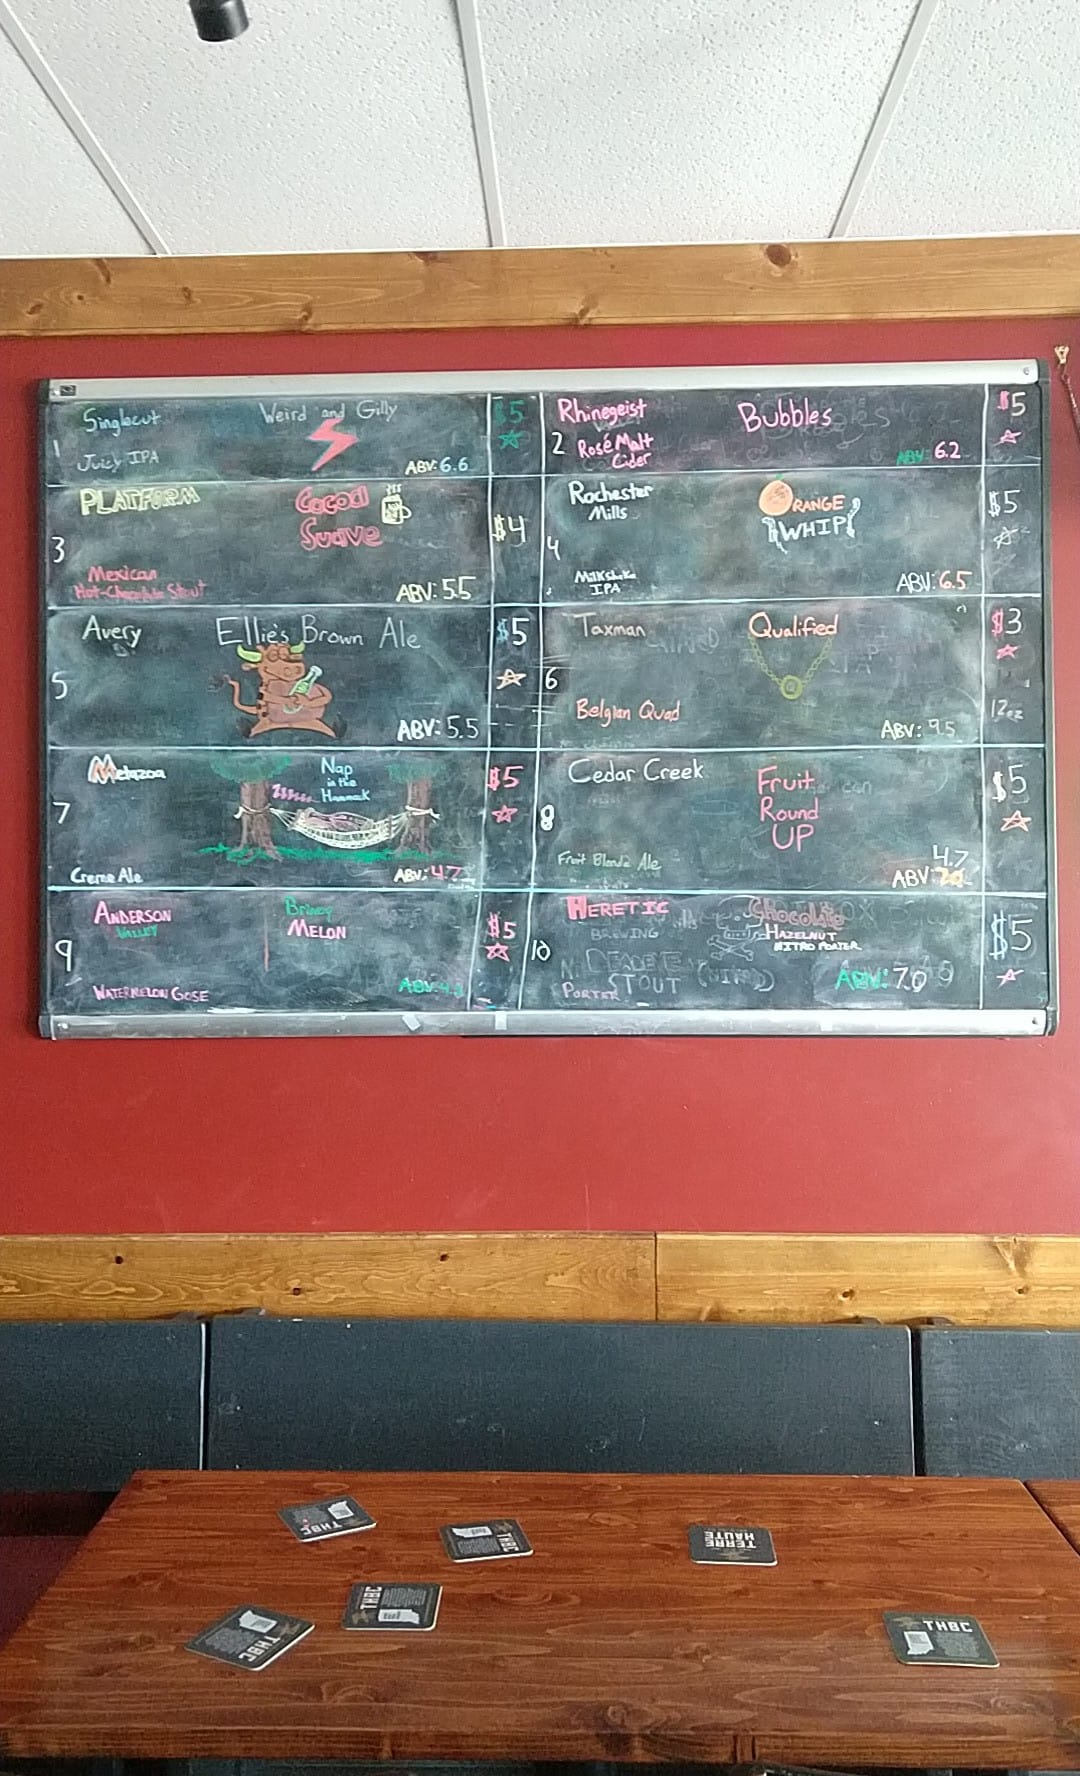 1
Singlecut
Weird and Gilly
Juicy IPA
ABV: 6.6
$5
2
Rhinegeist
Bubbles
Rosé Malt
Cider
ABV: 6.2
$5
3
PLATFORM
Cocoa
Suave
Mexican
Hot-Chocolate Stout
ABV: 5.5
$4
4
Rochester
Mills
ORANGE
WHIP
Milkshake
IPA
ABV: 6.5
$5
5
Avery
Ellie's Brown Ale
ABV: 5.5
$5
6
Taxman
Qualified
Belgian Quad
ABV: 9.5
$3
12oz
7
Metazoa
Nap
in the
Hammock
Creme Ale
ABV: 4.7
$5
8
Cedar Creek
Fruit
Round
UP
Fruit Blonde Ale
4.7
ABV:
$5
9
ANDERSON
VALLEY
Briney
MELON
WATERMELON GOSE
ABV: 4.2
$5
10
HERETIC
BREWING
Chocolate
HAZELNUT
NITRO PORTER
STOUT
PORTER
ABV: 7.0
$5
THBC
THBC
TERRE
HAUTE
THBC
THBC
THBC